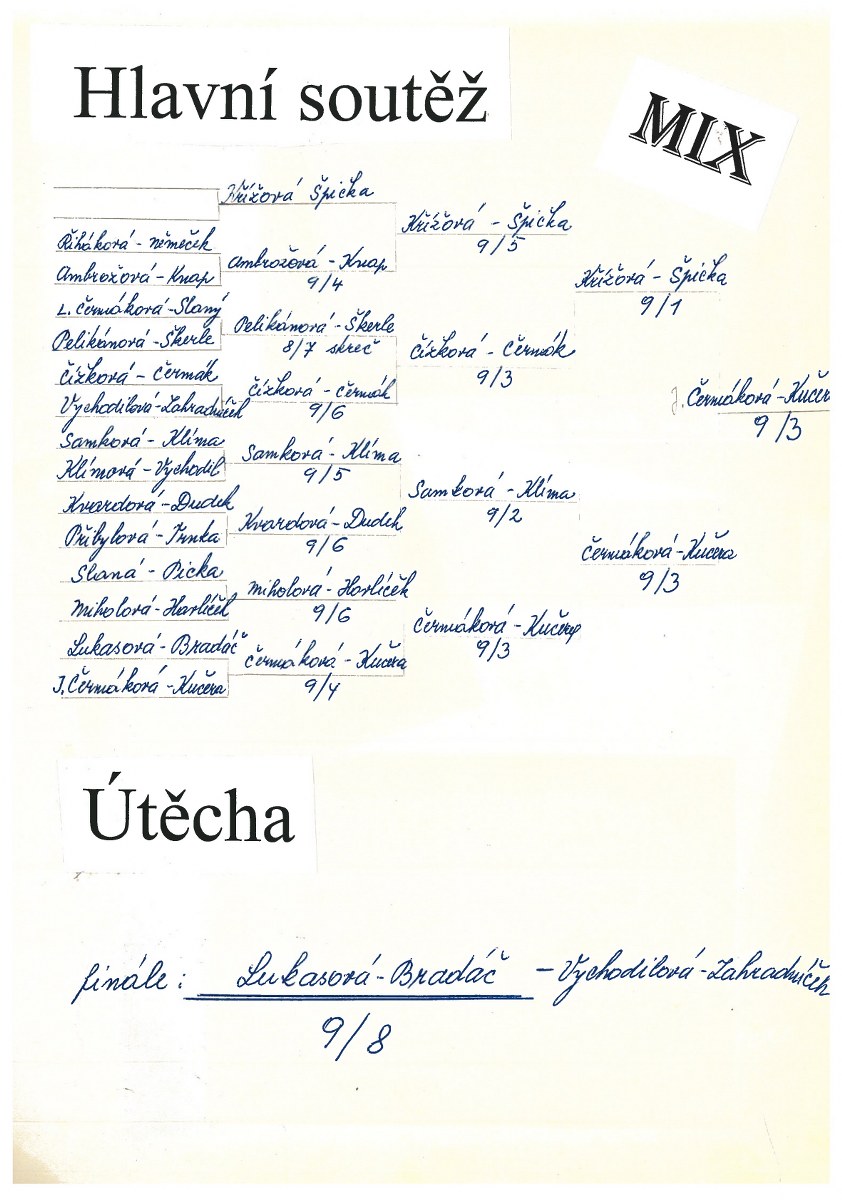 Hlavní soutěž
MIX
Křížová Špička
Křížová - Špička
9/5
Řiháková - Němeček
Ambrožová - Knap
9/4
Ambrožová - Knap
Křížová - Špička
9/1
L. Čermáková - Slaný
Pelikánová - Škerle
8/7 skreč
Pelikánová - Škerle
Čížková - Čermák
9/3
Čížková - Čermák
Čížková - Čermák
9/6
Vychodilová - Zahradníček
J. Čermáková - Kučer
9/3
Samková - Klíma
Samková - Klíma
9/5
Klímová - Vychodil
Samková - Klíma
9/2
Kvardová - Dudek
Kvardová - Dudek
9/6
Přibylová - Trnka
Čermáková - Kučera
9/3
Slaná - Picka
Miholová - Horlíček
9/6
Miholová - Harlíček
Čermáková - Kučera
9/3
Lukasová - Bradáč
Čermáková - Kučera
9/4
J. Čermáková - Kučera
Útěcha
finále: Lukasová - Bradáč - Vychodilová - Zahradníček
9/8